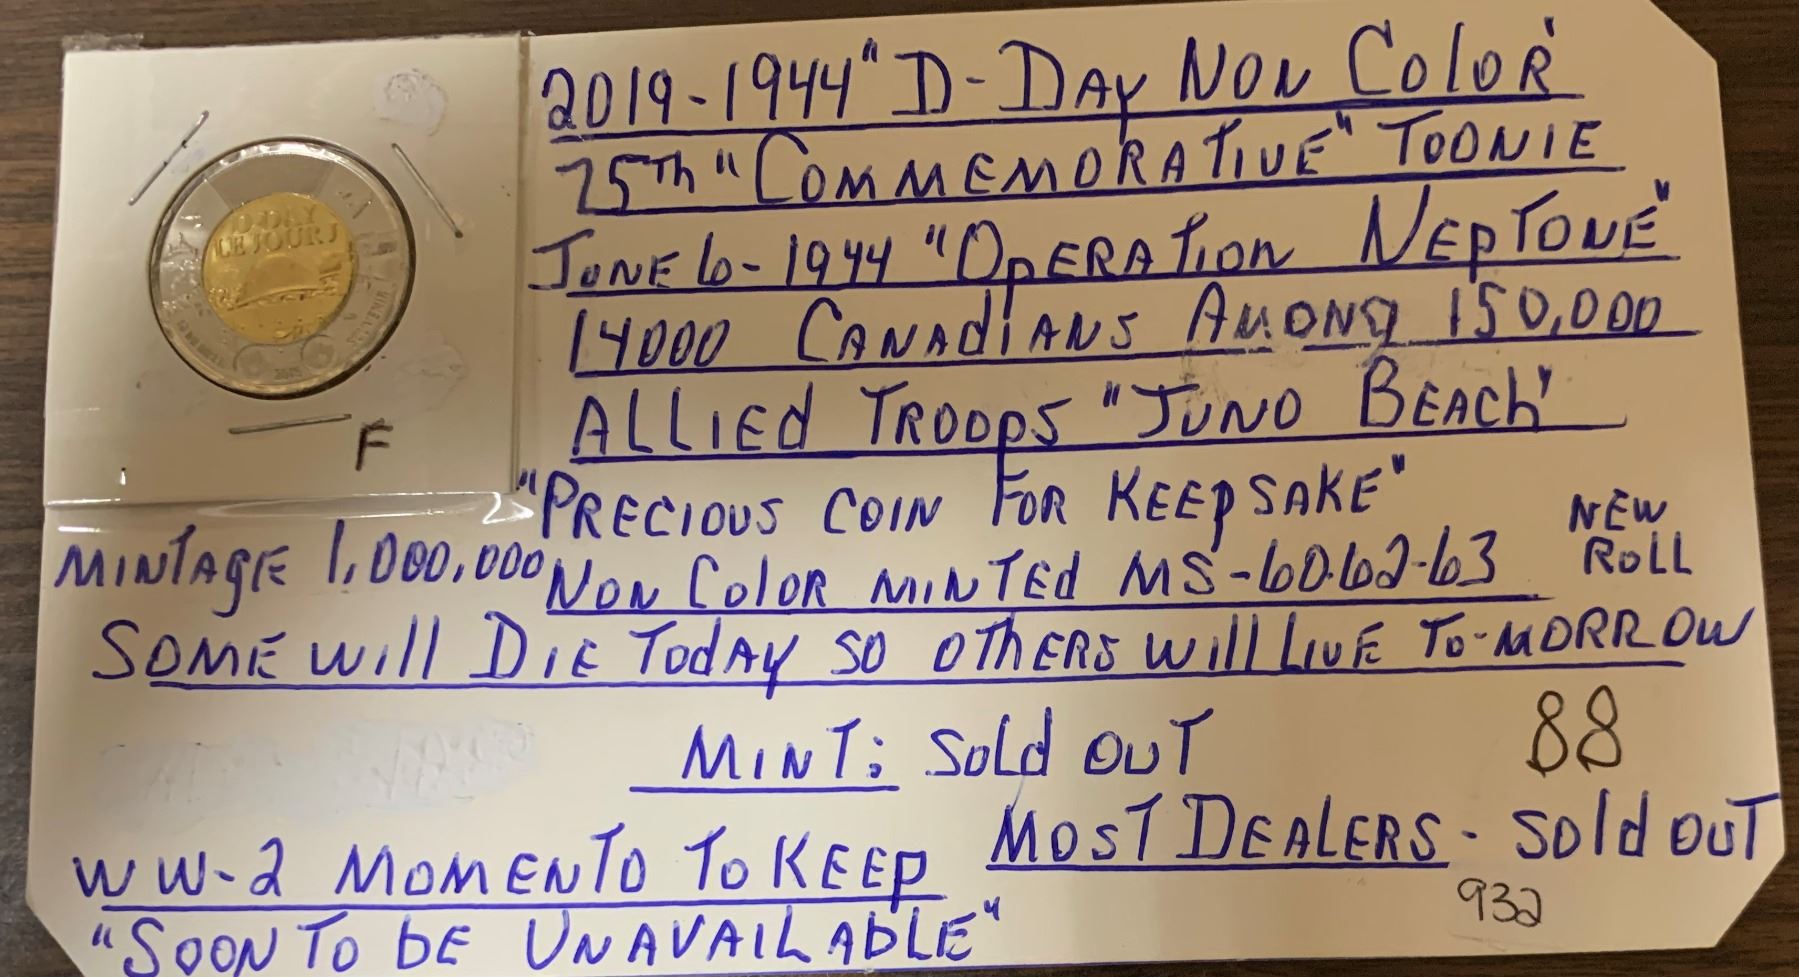 2019-1944 "D-DAY NON COLOR"
75Th "COMMEMORATIVE" TOONIE
JUNE 6-1944 "OPERATION NEPTUNE"
14000 CANADIANS AMONG 150,000
ALLIED TROOPS "JUNO BEACH"
"PRECIOUS COIN FOR KEEPSAKE"
MINTAGE 1,000,000
NON COLOR MINTED MS-60-62-63
NEW
ROLL
SOME WILL DIE TODAY SO OTHERS WILL LIVE TO-MORROW
MINT: SOLD OUT
88
MOST DEALERS - SOLD OUT
WW-2 MOMENTO TO KEEP
932
"SOON TO BE UNAVAILABLE"
D-DAY
LE JOUR J
F